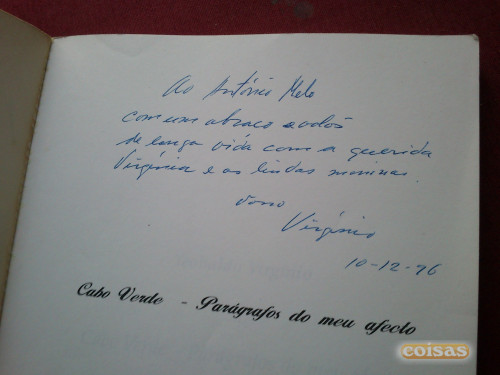 Ao António Melo
com um abraço e votos
de longa vida com a querida
Virgínia e as lindas meninas.
do vosso
Virgínio
10-12-96
Cabo Verde - Parágrafos do meu afecto
coisas